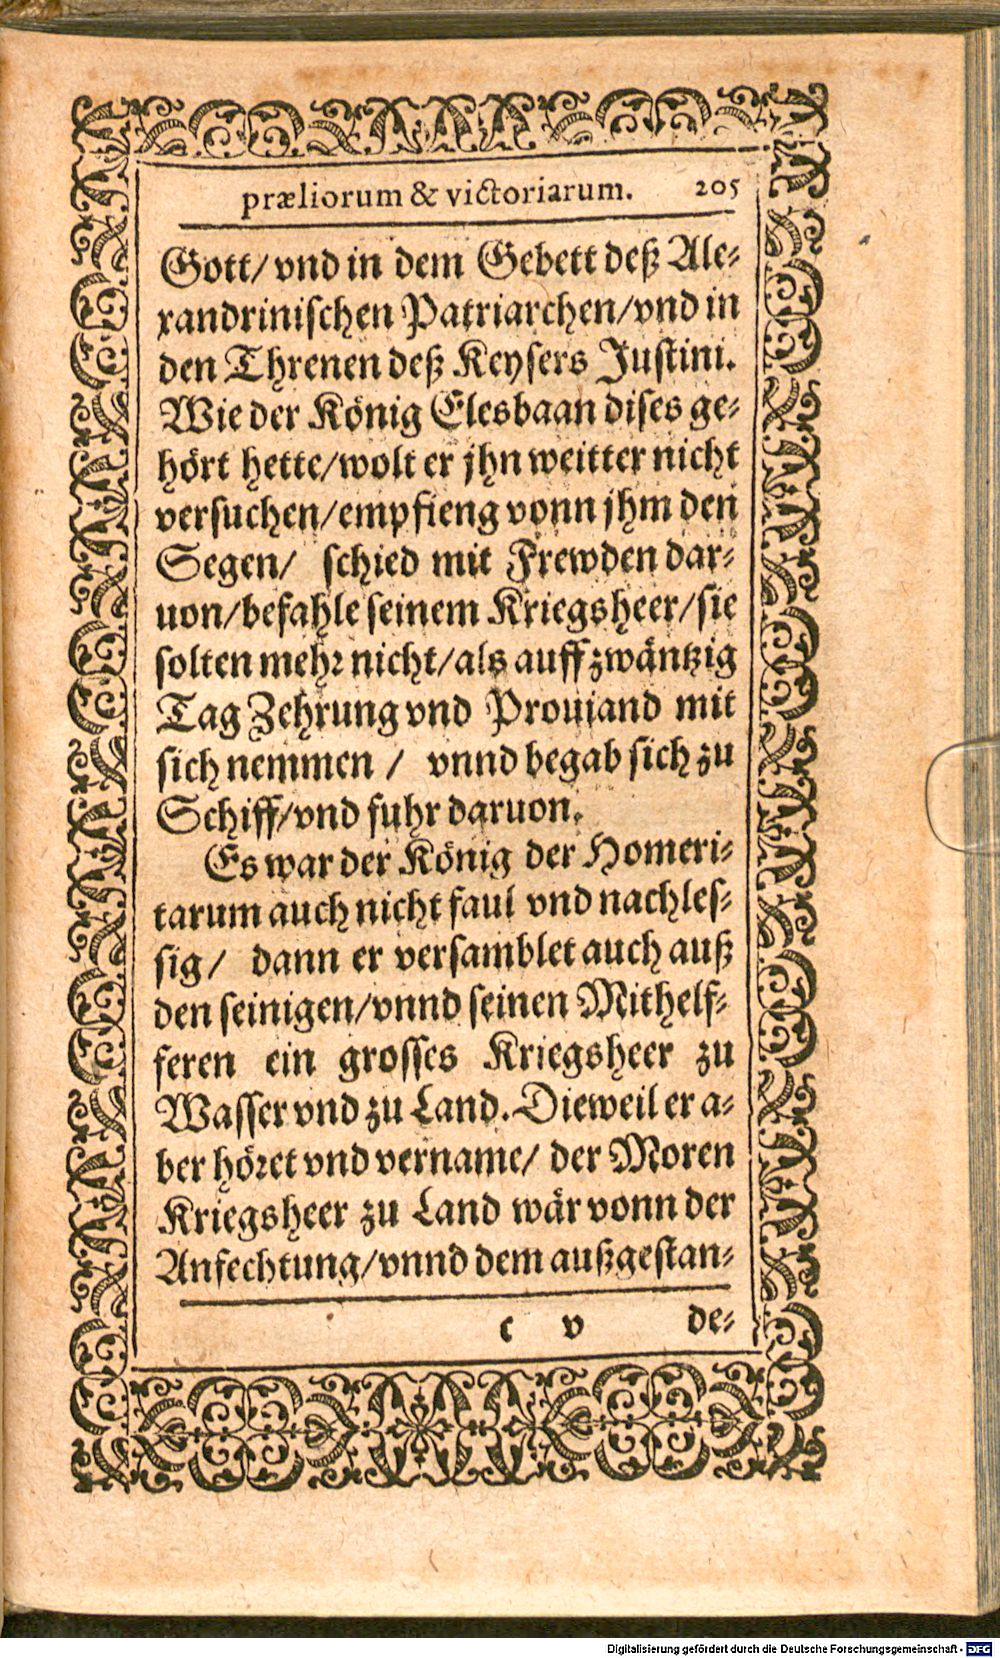 præliorum & victoriarum. 205
Gott/ vnd in dem Gebett deß Ale-
xandrinischen Patriarchen/vnd in
den Threnen deß Keysers Justini.
Wie der König Elesbaan dises ge-
hört hette/wolt er jhn weitter nicht
versuchen/empfieng vonn jhm den
Segen/ schied mit Frewden dar-
uon/befahle seinem Kriegsheer/sie
solten mehr nicht/als auff zwäntzig
Tag Zehrung vnd Prouiand mit
sich nemmen / vnnd begab sich zu
Schiff/vnd fuhr daruon.
Es war der König der Homeri-
tarum auch nicht faul vnd nachles-
sig/ dann er versamblet auch auß
den seinigen/vnnd seinen Mithelf-
feren ein grosses Kriegsheer zu
Wasser vnd zu Land. Dieweil er a-
ber höret vnd vername/ der Moren
Kriegsheer zu Land wär vonn der
Anfechtung/vnnd dem außgestan-
c v de-
Digitalisierung gefördert durch die Deutsche Forschungsgemeinschaft - DFG